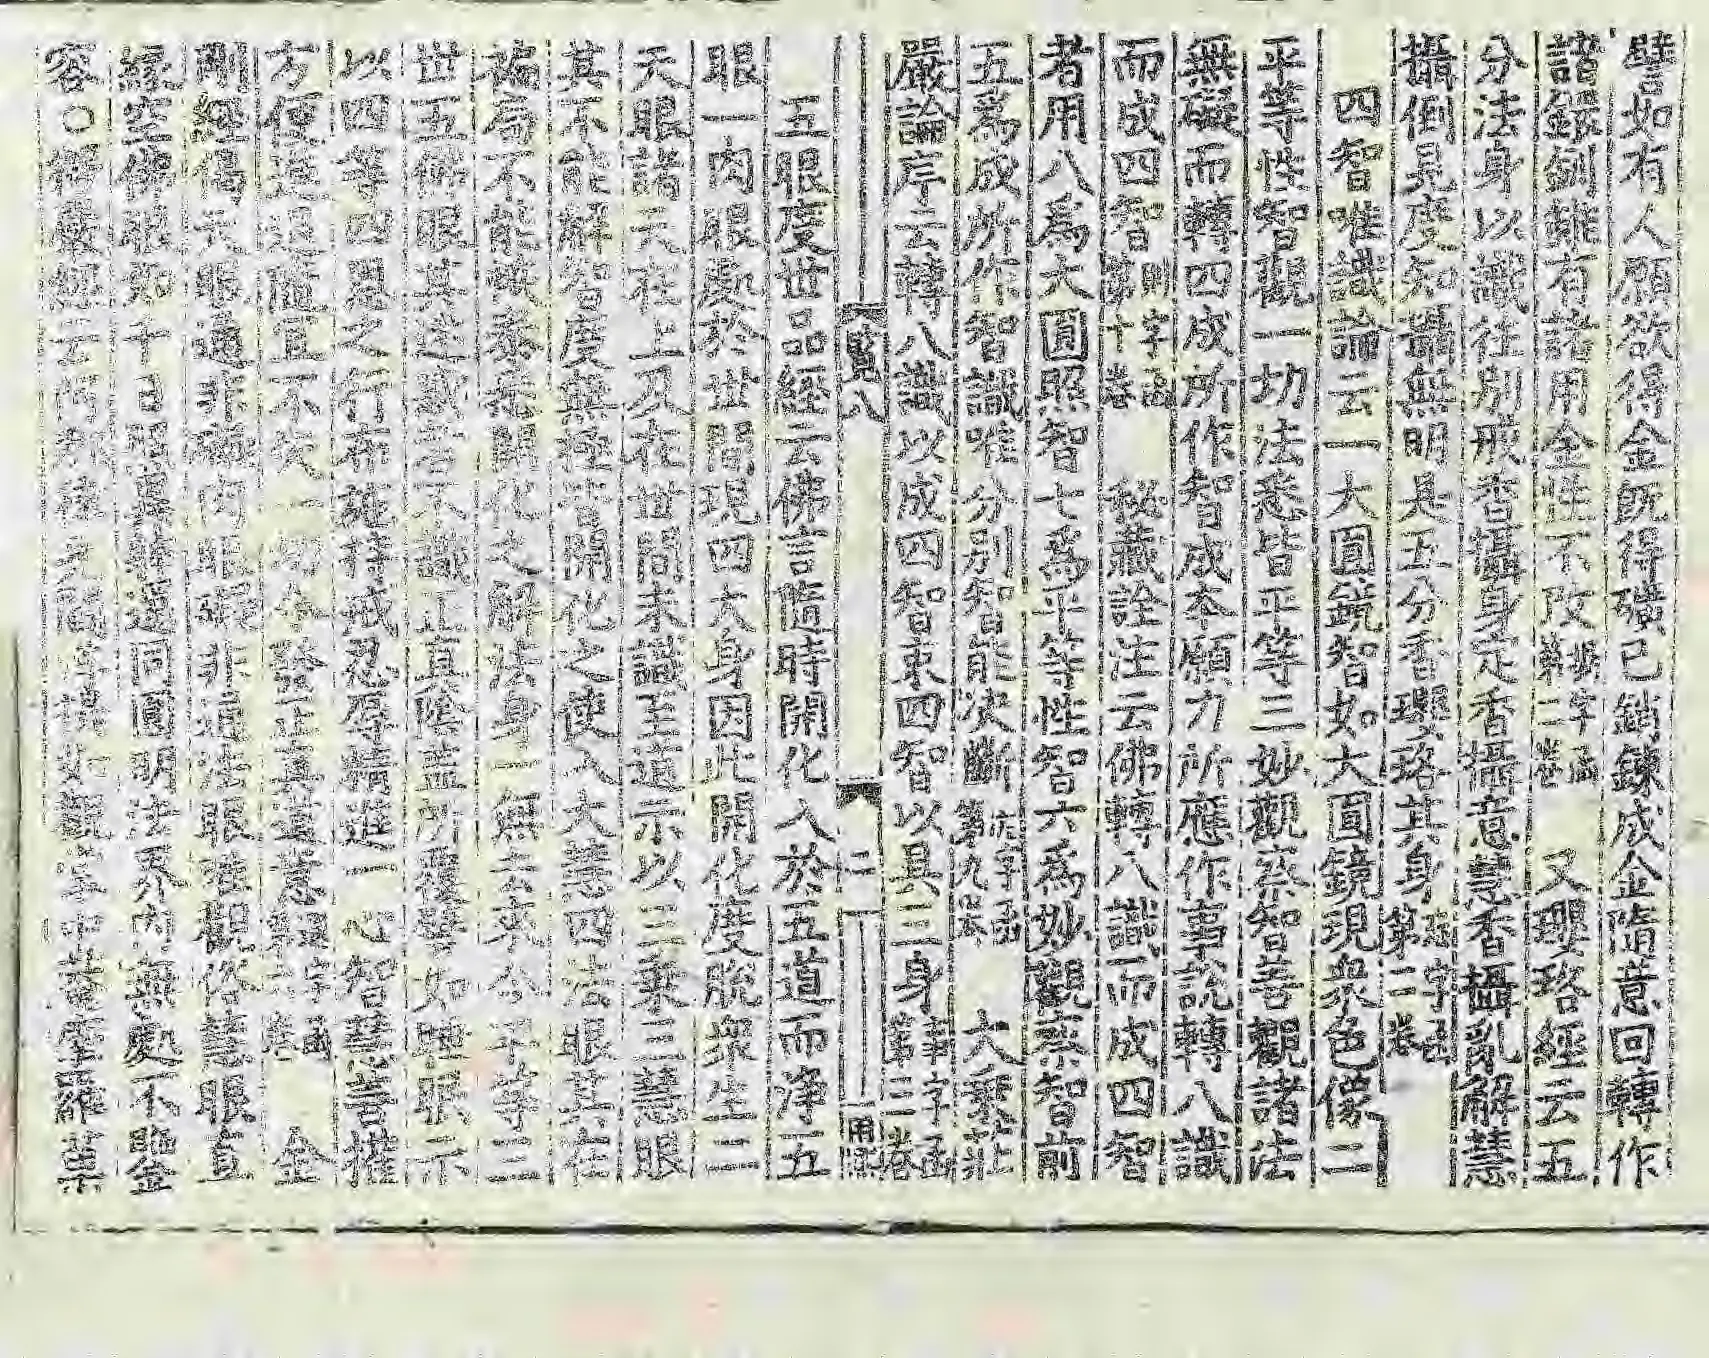 譬如有人願欲得金既得礦已銷鍊成金隋意回轉作
諸鐶釧雖有諸用金性不改 又瓔珞經云五
分法身以識往別戒香攝身定香攝意慧香攝亂解慧
攝倒見度知攝無明是五分香瓔珞其身 第二卷
四智唯識論云一大圓鏡智如大圓鏡現衆色像二
平等性智觀一切法悉皆平等三妙觀察智善觀諸法
無礙而轉四成所作智成本願力所應作事說轉八識
而成四智 第十卷 秘藏詮注云佛轉八識而成四智
者用八爲大圓照智七爲平等性智六爲妙觀察智前
五爲成所作智識唯分別智能決斷 第九卷 大乘莊
嚴論序云轉八識以成四智束四智以具三身 第三卷
覽八 二
五眼度世品經云佛言隨時開化入於五道而淨五
眼一肉眼處於世間現四大身因此開化度脫衆生二
天眼諸天在上及在世間未識至道示以三乘三慧眼
其不能解智度無極皆開化之使入大慧四法眼其在
褊局不能恢泰悉開化之解法身一無去來今平等三
世五佛眼其迷惑者不識正真陰蓋所覆譬如睡眠示
以四等四恩之行布施持戒忍辱精進一心智慧善權
方便進退隨宜不失一切令發正真道意 金
剛經偈天眼通非礙肉眼礙非通法眼唯觀俗慧眼直
緣空佛眼如千日照異體還同圓明法界內無處不鑒
容○楞嚴經云阿那律